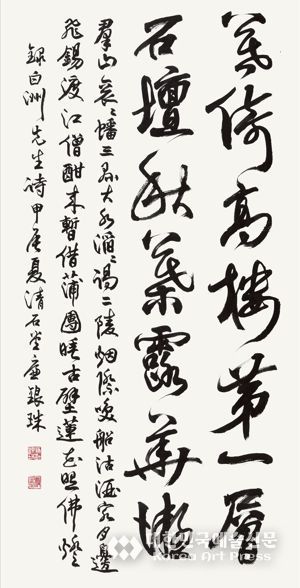 暮倚高樓第一層
石壇秋葉露華凝
羣山袞〻蟠三縣大水滔〻謁二陵烟際喚船沽酒客月邊
飛錫渡江僧酣來暫借蒲團睡古壁蓮花照佛燈
錄白洲先生詩甲辰夏清石堂銀珠
대한민국예술신문
Korea Art Press